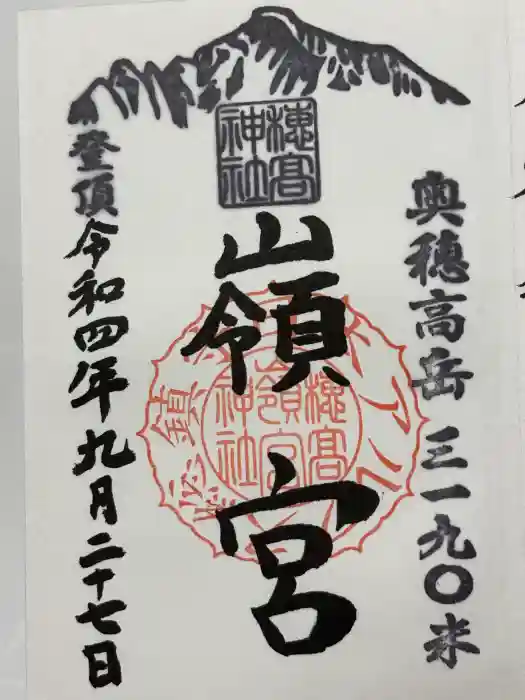 奥穂高岳 三一九〇米
穂高神社
嶺宮
穂高神社嶺宮
登頂
令和四年九月二十七日